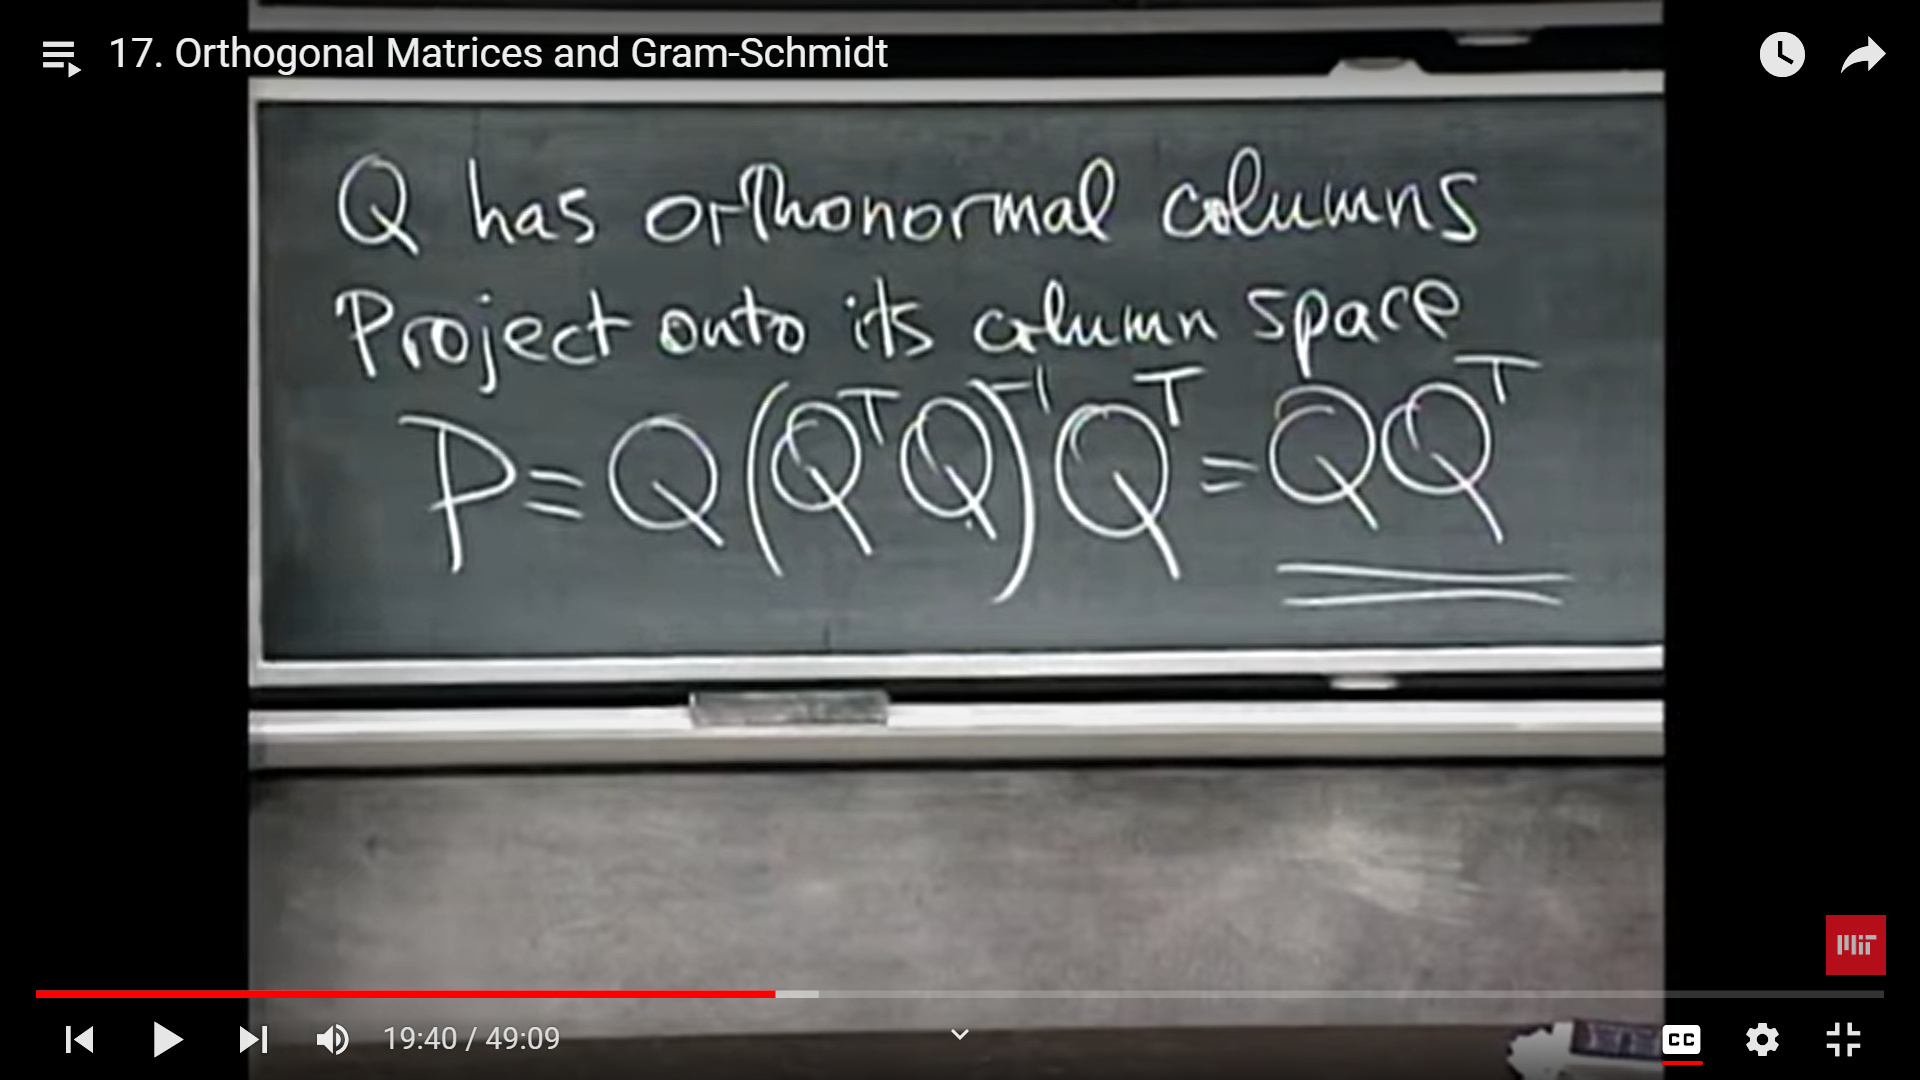 17. Orthogonal Matrices and Gram-Schmidt
Q has orthonormal columns
Project onto its column space
P = Q (QᵀQ)⁻¹ Qᵀ = QQᵀ
MIT
19:40 / 49:09
CC